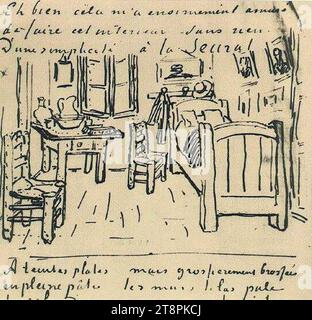 Eh bien cela m'a énormément amusé
de faire cet intérieur sans rien
D'une simplicité à la Seurat
A teintes plates mais grossièrement brossées
en pleine pâte les murs lilas pale
alamy
Image ID: 2T8PKCJ
www.alamy.com